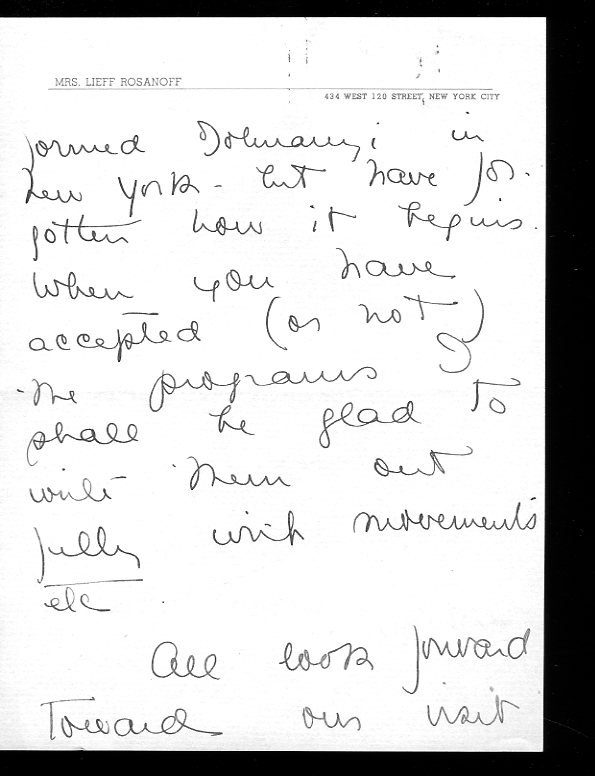 MRS. LIEFF ROSANOFF
434 WEST 120 STREET, NEW YORK CITY
formed Dohnanyi in
New York - but have for-
gotten how it begins.
When you have
accepted (or not)
the programs I
shall be glad to
write them out
fully with movements
etc
All look forward
Toward our visit